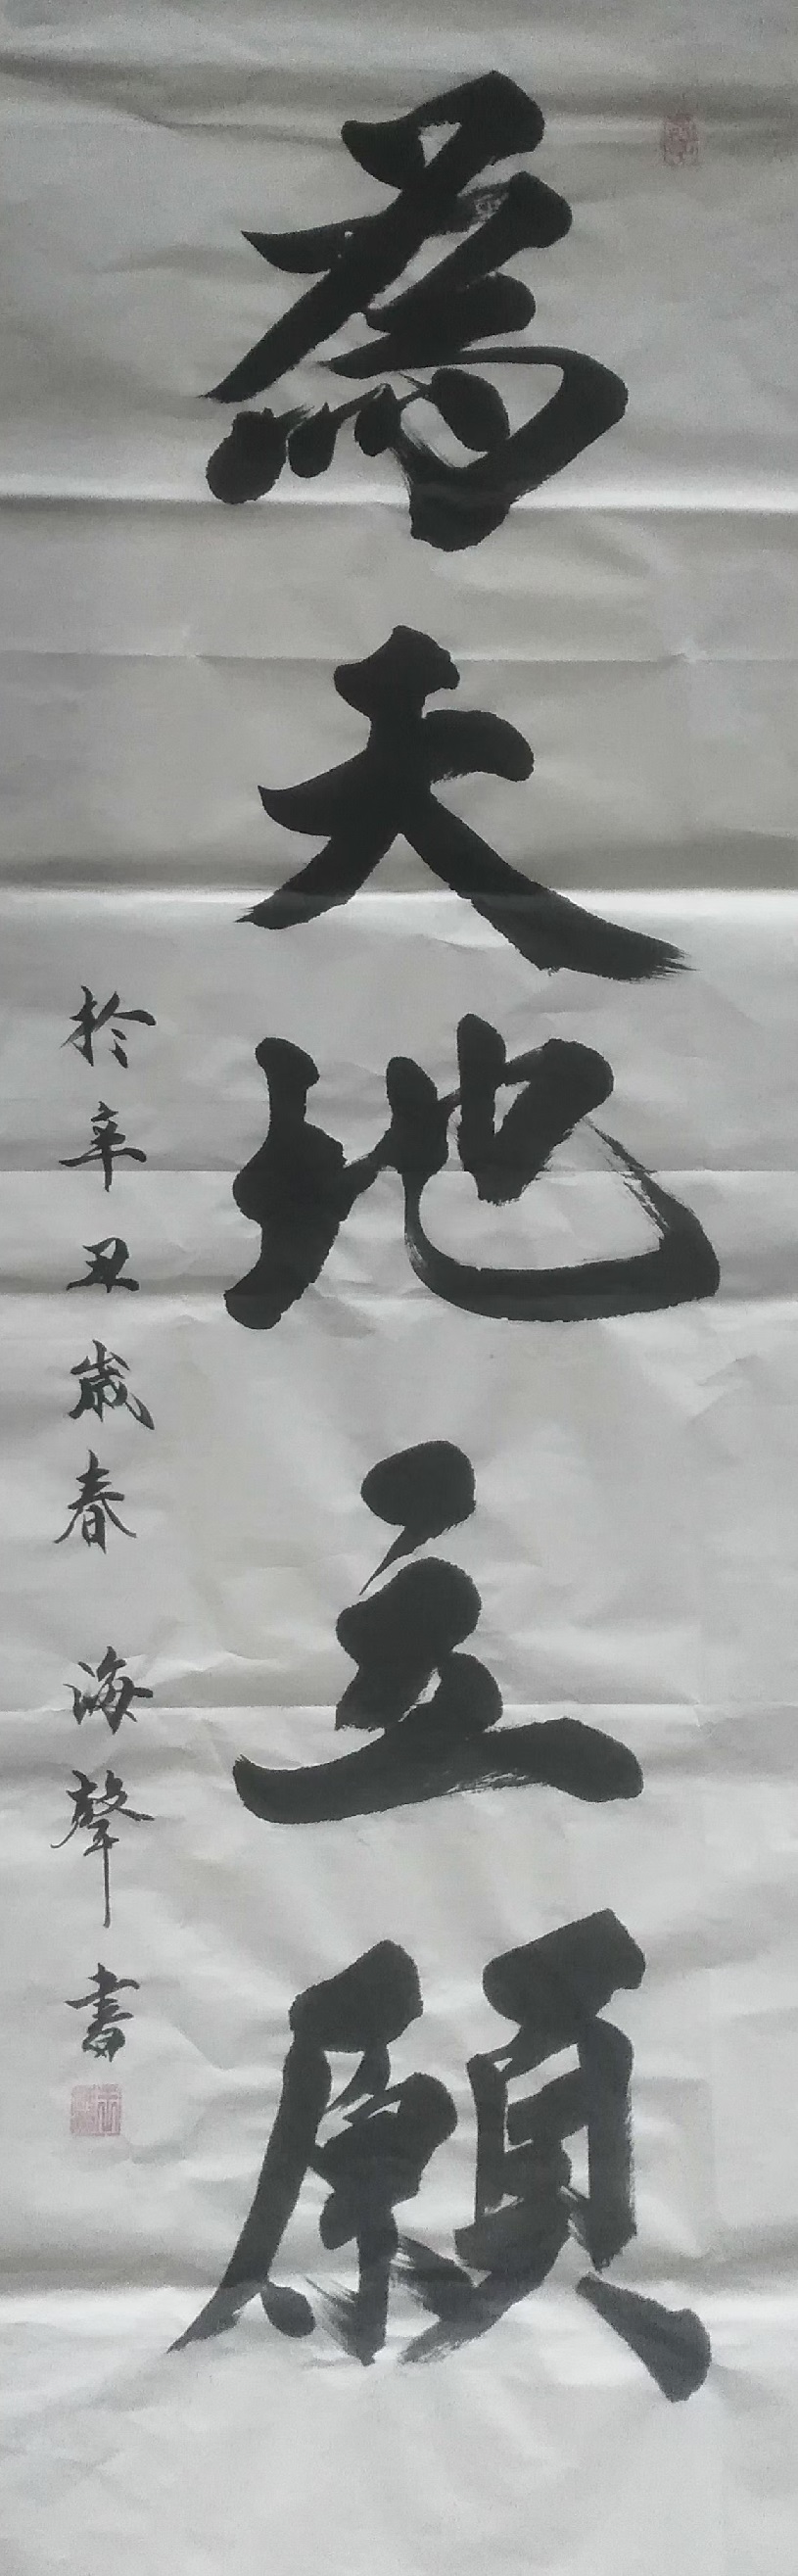 為天地立願
於辛丑歲春 海聲書